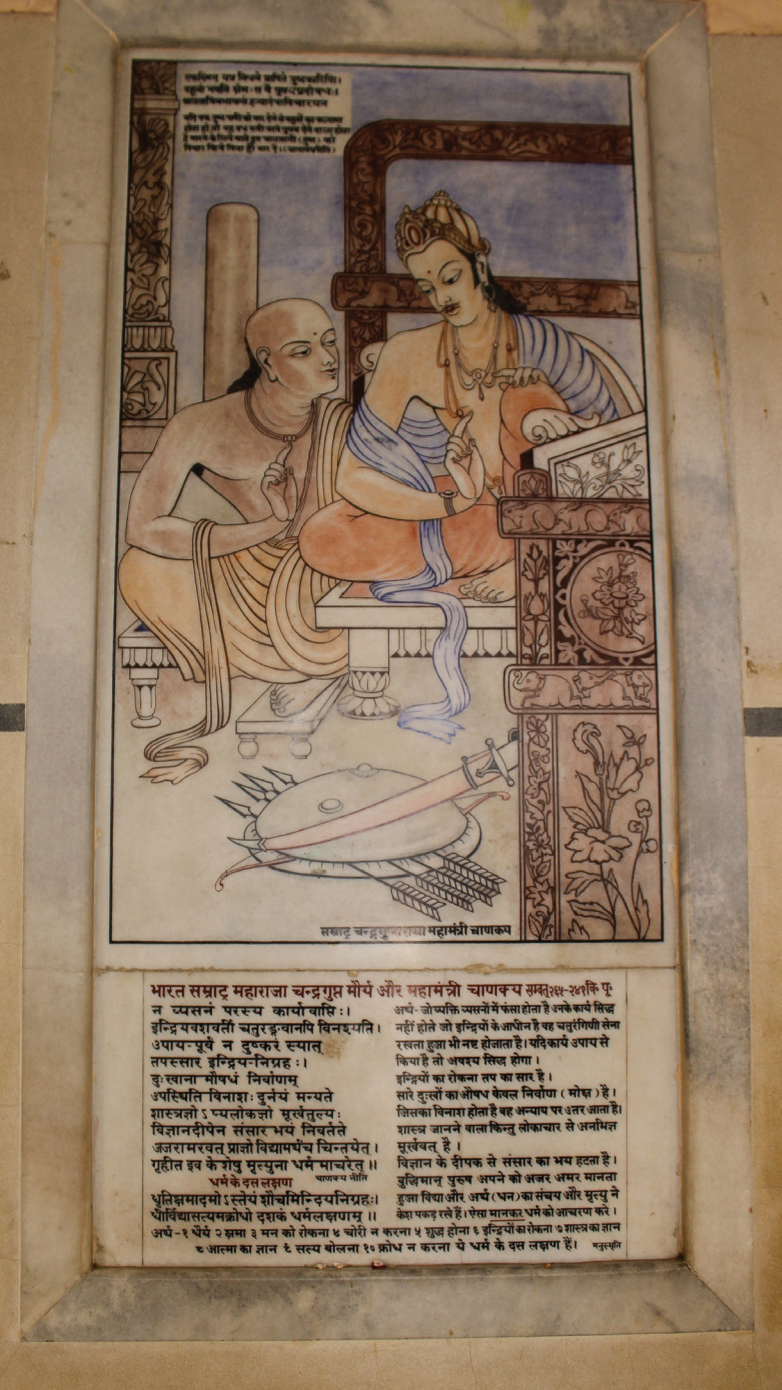 एकस्मिन् यत्र निधने प्रापिते दुष्टकारिणि।
बहूनां भवति क्षेमः स वै पुण्यप्रदो वधः॥
यदि एक दुष्ट प्राणी को मार देने से बहुतों का कल्याण
होता हो तो
सम्राट् चन्द्रगुप्त तथा महामंत्री चाणक्य
भारत सम्राट् महाराजा चन्द्रगुप्त मौर्य और महामन्त्री चाणक्य सम्वत् २६५-२४१ वि॰ पू॰
न व्यसनं परस्य कार्यावाप्तिः।
इन्द्रियवशवर्ती चतुरङ्गवानपि विनश्यति।
उपाय-पूर्वं न दुष्करं स्यात्
तपस्सार इन्द्रिय-निग्रहः।
दुःखाना मौषधं निर्वाणम्
उपस्थिति विनाशः दुर्नयं मन्यते
शास्त्रज्ञोऽप्यलोकज्ञो मूर्खतुल्यः
विज्ञानदीपेन संसार भयं निवर्तते
अजरामरवत् प्राज्ञो विद्यामर्थंच चिन्तयेत्।
गृहीत इव केशेषु मृत्युना धर्म माचरेत्॥
चाणक्य नीति
धर्म के दस लक्षण
धृतिक्षमादमोऽस्तेयं शौचमिन्दियनिग्रहः।
धीर्विद्यासत्यमक्रोधो दशकं धर्मलक्षणम्॥
अर्थ-जो व्यक्ति व्यसनों में फंसा होता है उनके कार्य सिद्ध
नहीं होते जो इन्द्रियों के आधीन है वह चतुरंगिणी सेना
रखता हुआ भी नष्ट होजाता है। यदि कार्य उपाय से
किया है तो अवश्य सिद्ध होगा।
इन्द्रियों का रोकना तप का सार है।
सारे दुःखों का औषध केवल निर्वाण (मोक्ष) है।
जिसका विनाश होता है वह अन्याय पर उतर आता है।
शास्त्र जानने वाला किन्तु लोकाचार से अनभिज्ञ
मूर्खवत् है।
विज्ञान के दीपक से संसार का भय हटता है।
बुद्धिमान् पुरुष अपने को अजर अमर मानता
हुआ विद्या और अर्थ (धन) का संचय और मृत्यु ने
केश पकड़ रखे हैं। ऐसा मानकर धर्म को आचरण करे।
अर्थ-१ धैर्य २ क्षमा ३ मन को रोकना ४ चोरी न करना ५ शुद्ध होना ६ इन्द्रियों का रोकना ७ शास्त्र का ज्ञान
८ आत्मा का ज्ञान ९ सत्य बोलना १० क्रोध न करना ये धर्म के दस लक्षण हैं। मनुस्मृति